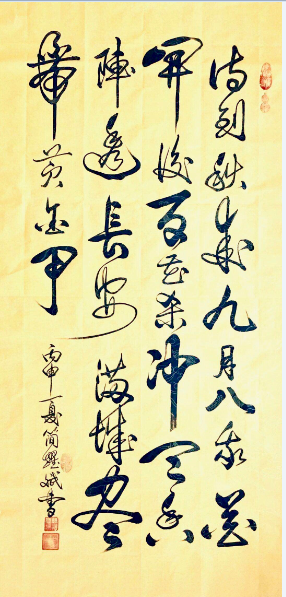 待到秋来九月八我花
开后百花杀冲天香
阵透长安满城尽
带黄金甲
丙申夏简继斌书